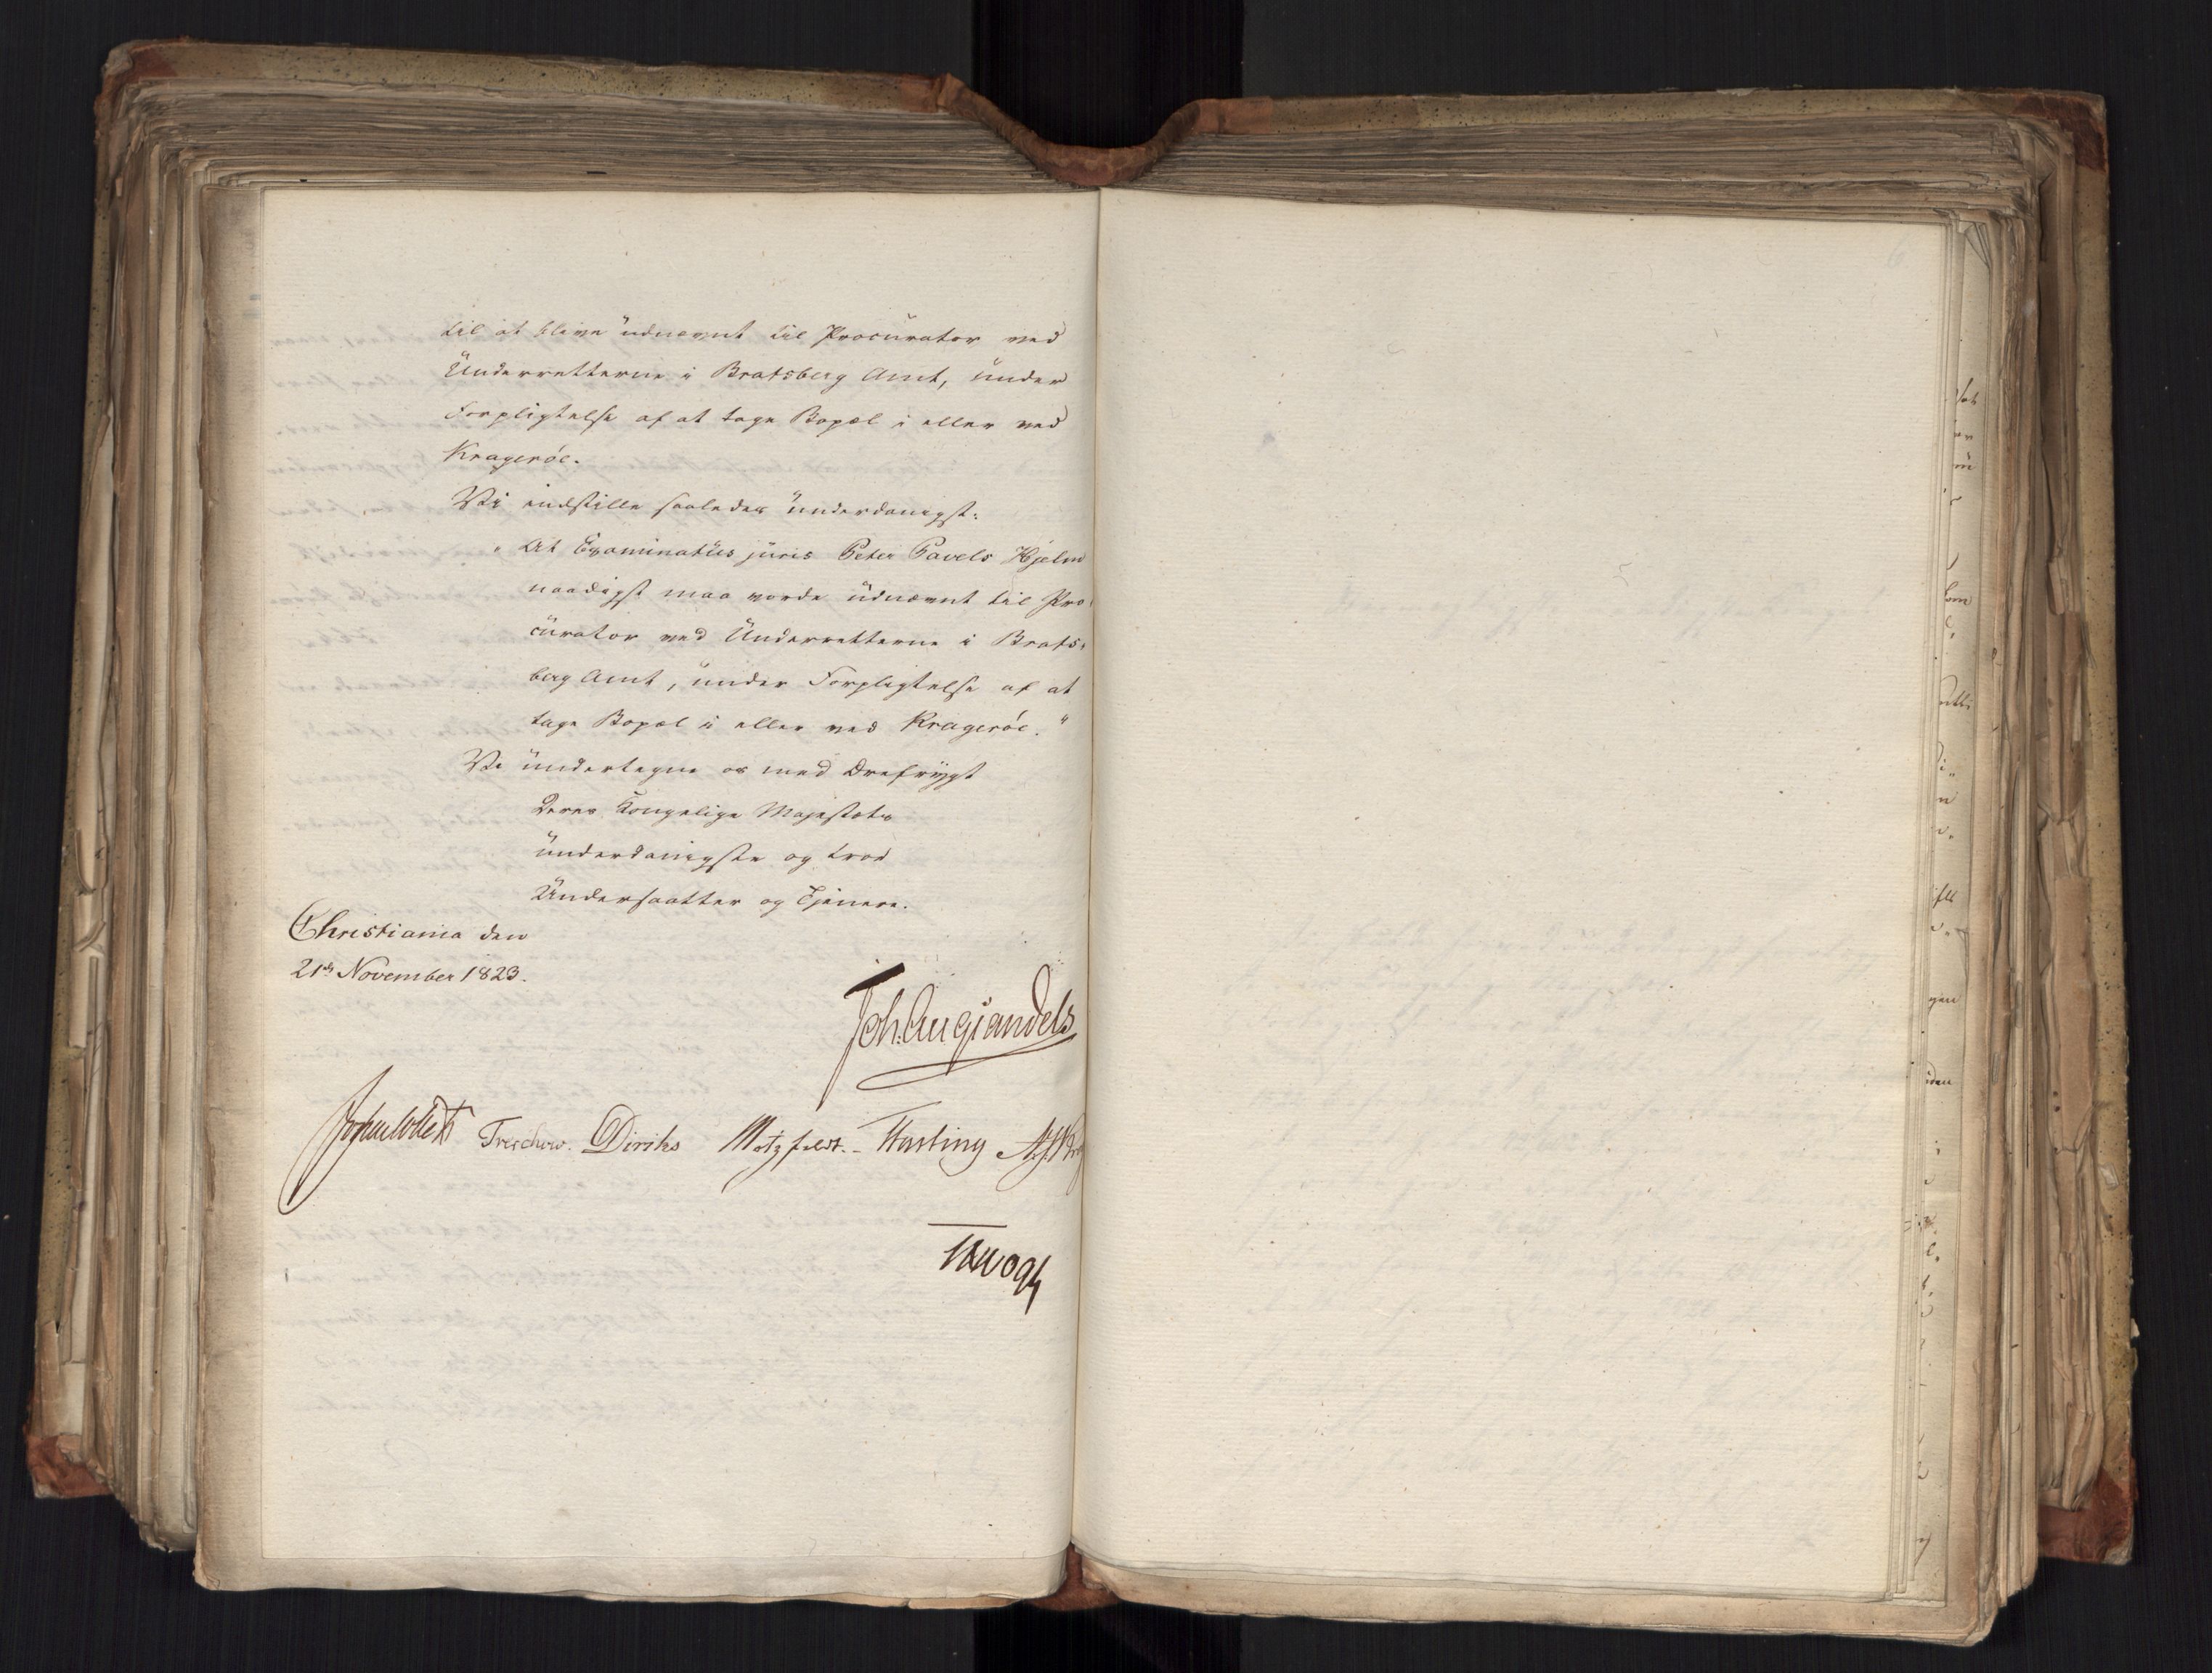 til at blive udnævnt til Procurator ved
Underretterne i Bratsberg Amt, under
Forpligtelse af at tage Bopæl i eller ved
Kragerøe.
Vi indstille saaledes underdanigst:
"At Examinatus juris Peter Pavels Hjelm
naadigst maa vorde udnævnt til Pro-
curator ved Underretterne i Brats-
berg Amt, under Forpligtelse af at
tage Bopæl i eller ved Kragerøe."
Vi undertegne os med Ærefrygt
Deres Kongelige Majestæts
underdanigste og troe
Undersaatter og Tjenere.
Christiania den
21de November 1823.
Joh. Aug Sandels
Treschow. Diriks Motzfeldt. Fasting